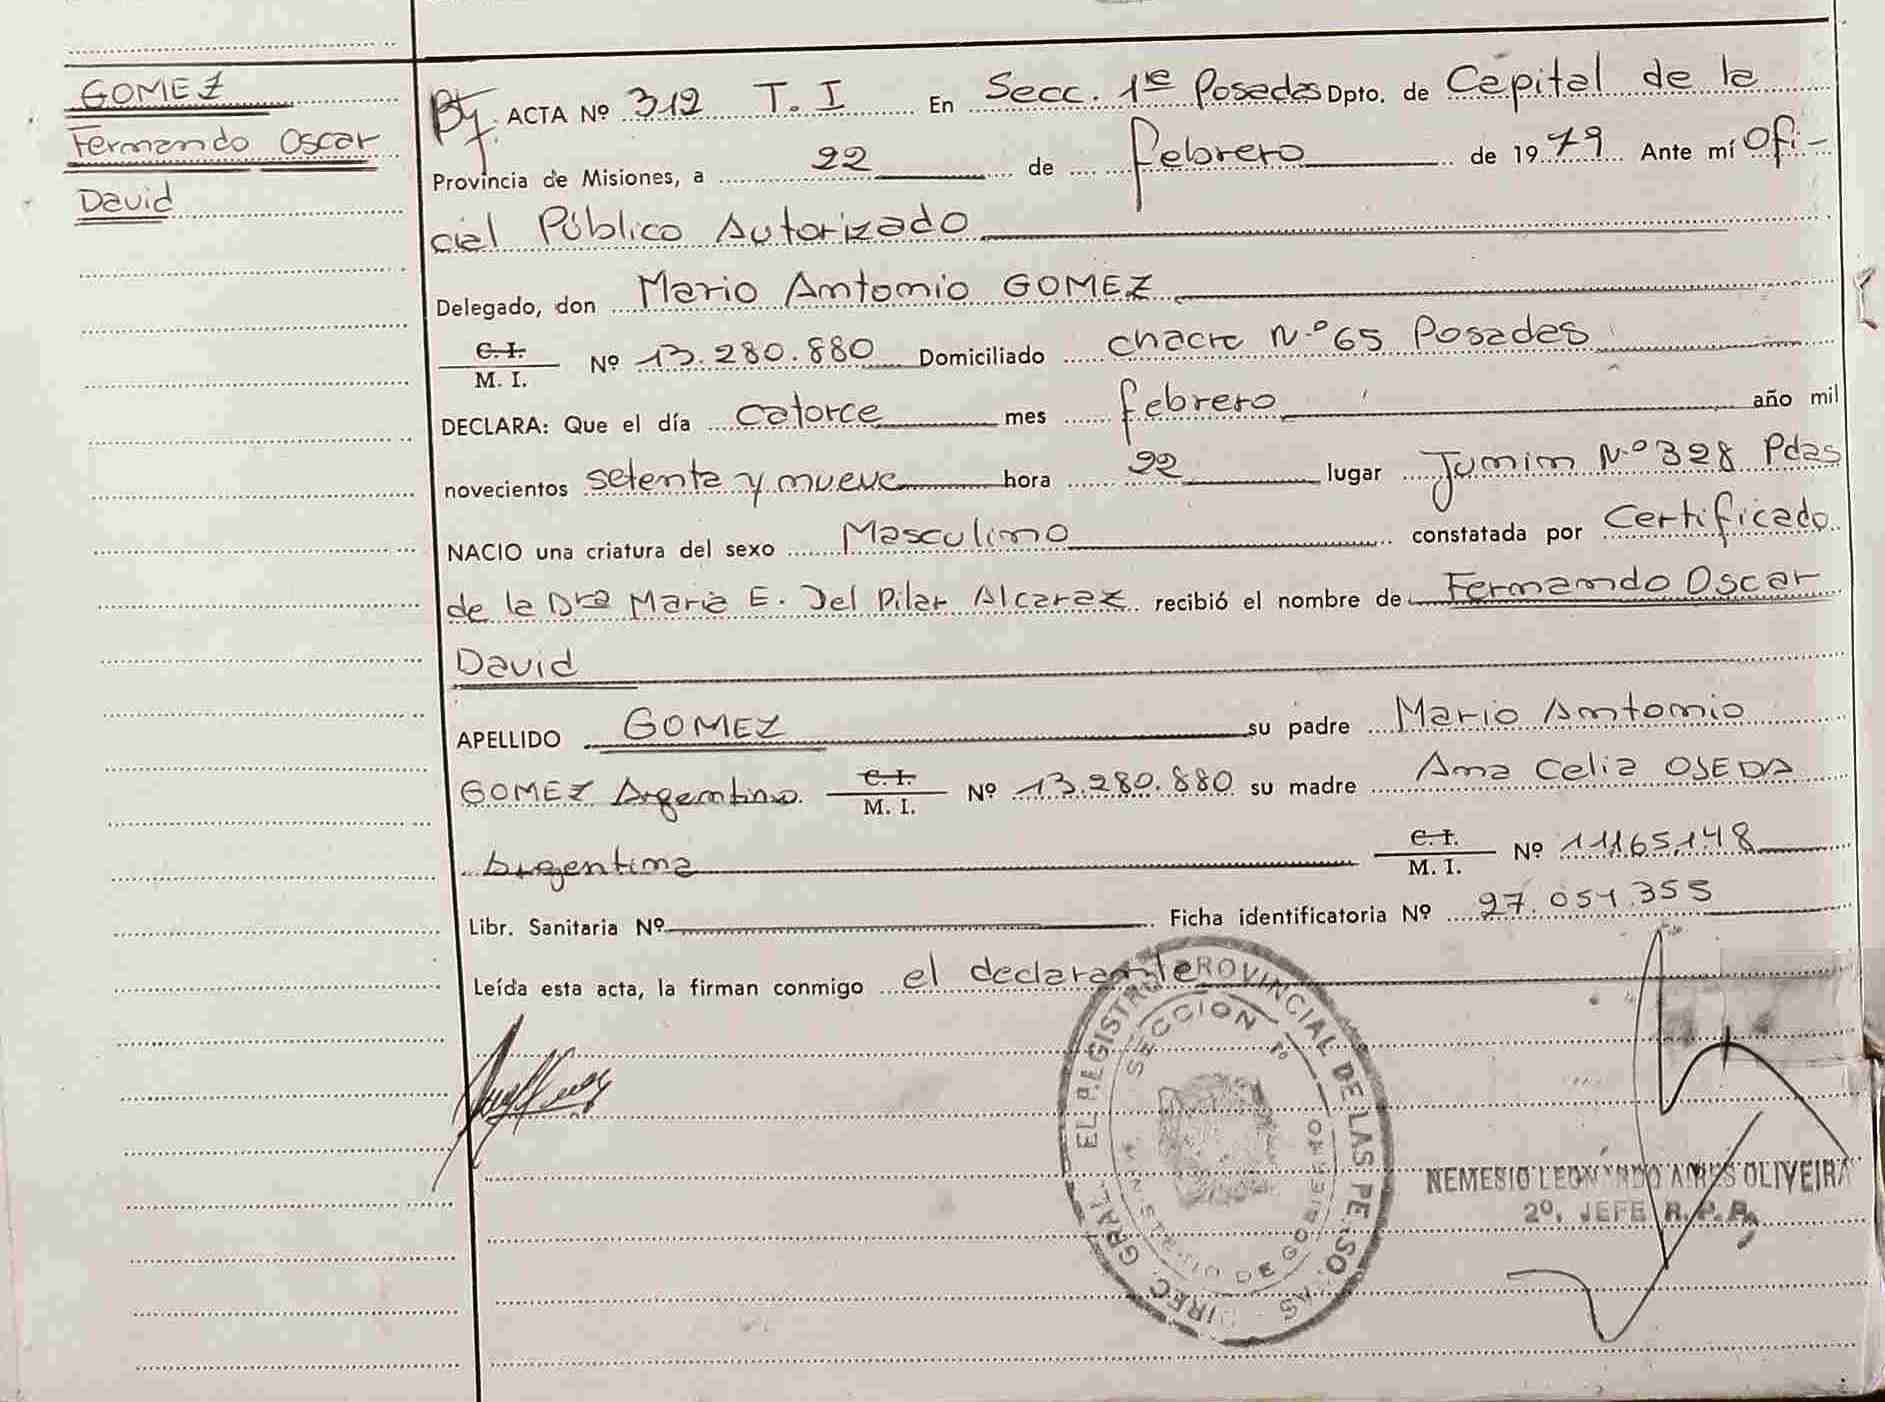 GOMEZ
Fernando Oscar
David
ACTA Nº 312 T. I En Secc. 1ª Posadas Dpto. de Capital de la
Provincia de Misiones, a 22 de febrero de 1979 Ante mí Ofi-
cial Público Autorizado
Delegado, don Mario Antonio GOMEZ
C. I.
M. I. Nº 13.280.880 Domiciliado chacra N.º 65 Posadas
DECLARA: Que el día catorce mes febrero año mil
novecientos setenta y nueve hora 22 lugar Junin N.º 328 Pdas
NACIO una criatura del sexo Masculino constatada por Certificado
de la Dra Maria E. Del Pilar Alcaraz recibió el nombre de Fernando Oscar
David
APELLIDO GOMEZ su padre Mario Antonio
GOMEZ Argentino C. I. M. I. Nº 13.280.880 su madre Ana Celia OJEDA
Argentina C. I. M. I. Nº 11.165.148
Libr. Sanitaria Nº Ficha identificatoria Nº 27.051.355
Leída esta acta, la firman conmigo el declarante
DIREC. GRAL. EL REGISTRO PROVINCIAL DE LAS PERSONAS
SECCION 1º
MINISTERIO DE GOBIERNO
NEMESIO LEONARDO AIRES OLIVEIRA
2º. JEFE R. P. P.